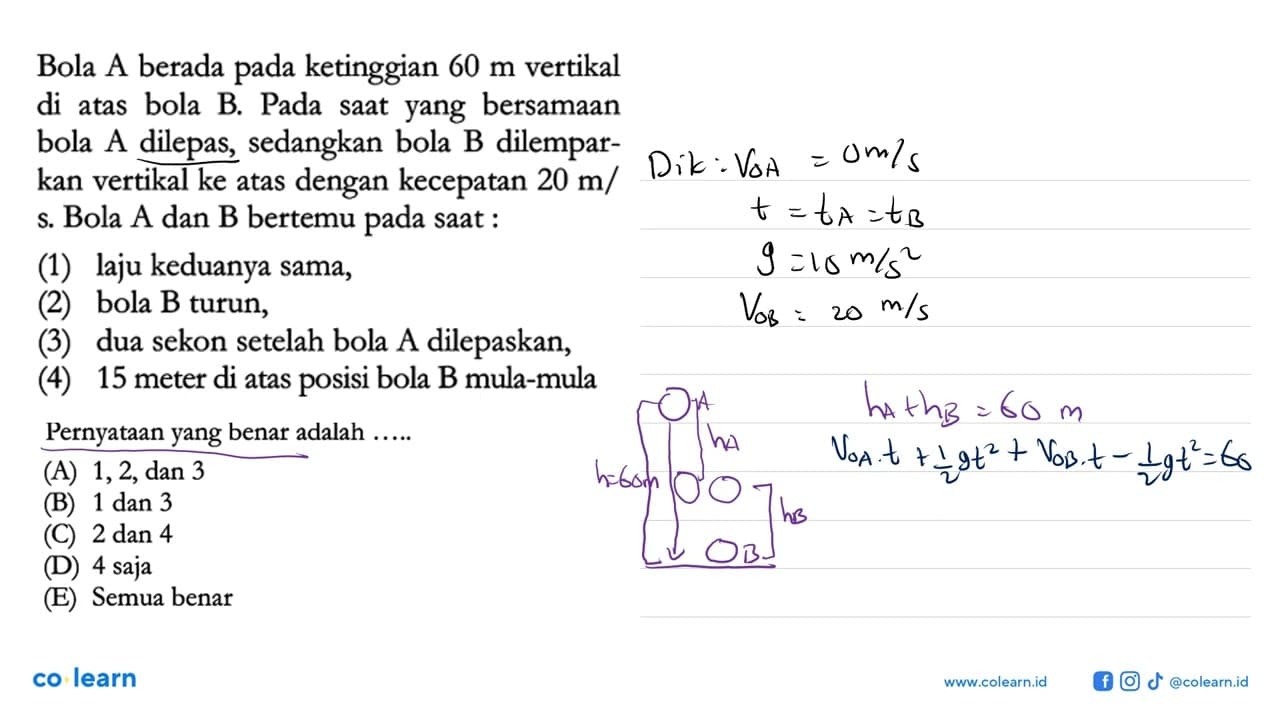 Bola A berada pada ketinggian 60 m vertikal
di atas bola B. Pada saat yang bersamaan
bola A dilepas, sedangkan bola B dilempar-
kan vertikal ke atas dengan kecepatan 20 m/
s. Bola A dan B bertemu pada saat :
(1) laju keduanya sama,
(2) bola B turun,
(3) dua sekon setelah bola A dilepaskan,
(4) 15 meter di atas posisi bola B mula-mula
Pernyataan yang benar adalah .....
(A) 1, 2, dan 3
(B) 1 dan 3
(C) 2 dan 4
(D) 4 saja
(E) Semua benar
Dik : V₀A = 0 m/s
t = tA = tB
g = 10 m/s²
V₀B = 20 m/s
A
hA
h=60m
hB
B
hA + hB = 60 m
V₀A.t + 1/2 gt² + V₀B.t - 1/2 gt² = 60
co learn
www.colearn.id
@colearn.id